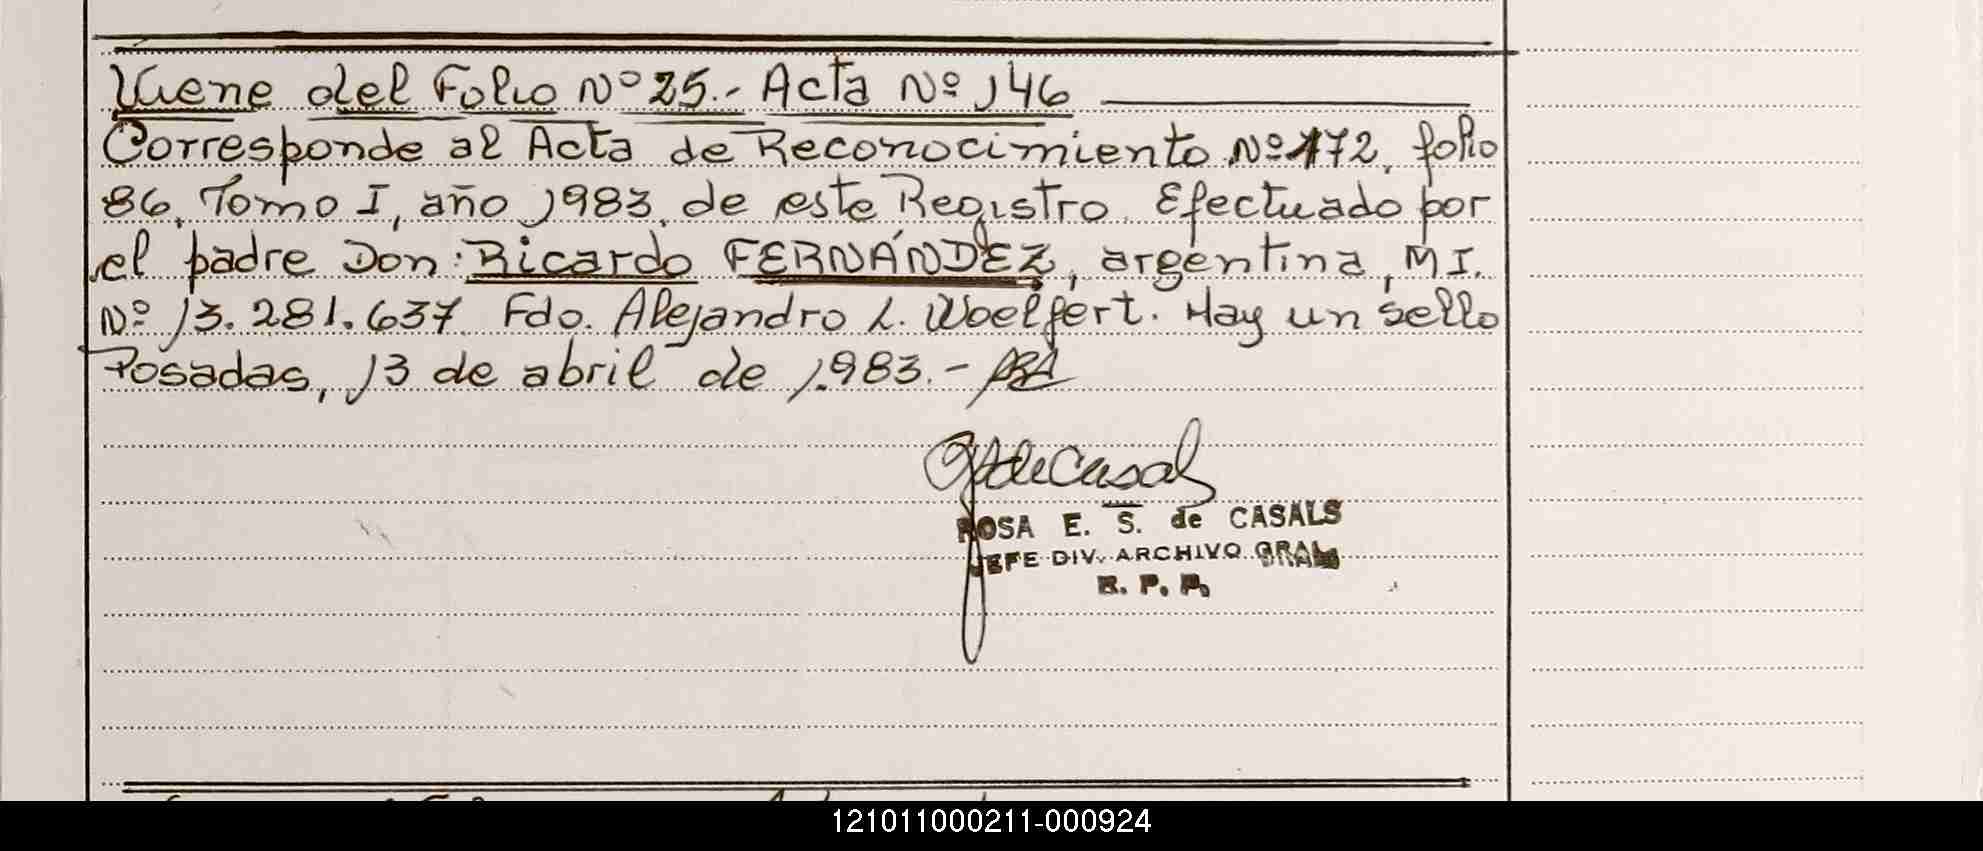 Viene del Folio Nº 25.- Acta Nº 146
Corresponde al Acta de Reconocimiento Nº 172, folio
86, Tomo I, año 1983, de este Registro. Efectuado por
el padre Don: Ricardo FERNÁNDEZ, argentina, M I.
Nº 13.281.637. Fdo. Alejandro L. Woelfert. Hay un sello
Posadas, 13 de abril de 1.983.-
deCasals
ROSA E. S. de CASALS
JEFE DIV. ARCHIVO GRAL
R. P. P.
121011000211-000924